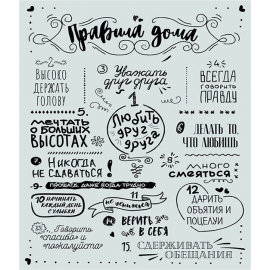 Правила дома
1
Любить
друг
друга
2
Высоко
держать
голову
3
Уважать
друг друга
4
Всегда
говорить
правду
5
мечтать
о больших
высотах
6
делать то,
что любишь
7
Никогда
не сдаваться!
8
много
смеяться
9
прощать, даже когда трудно
10 начинать
каждый день
с улыбки
11
не ябедничать
12
Дарить
объятия и
поцелуи
13
Говорить
"спасибо" и
"пожалуйста"
14
верить
в себя
15
сдерживать
обещания